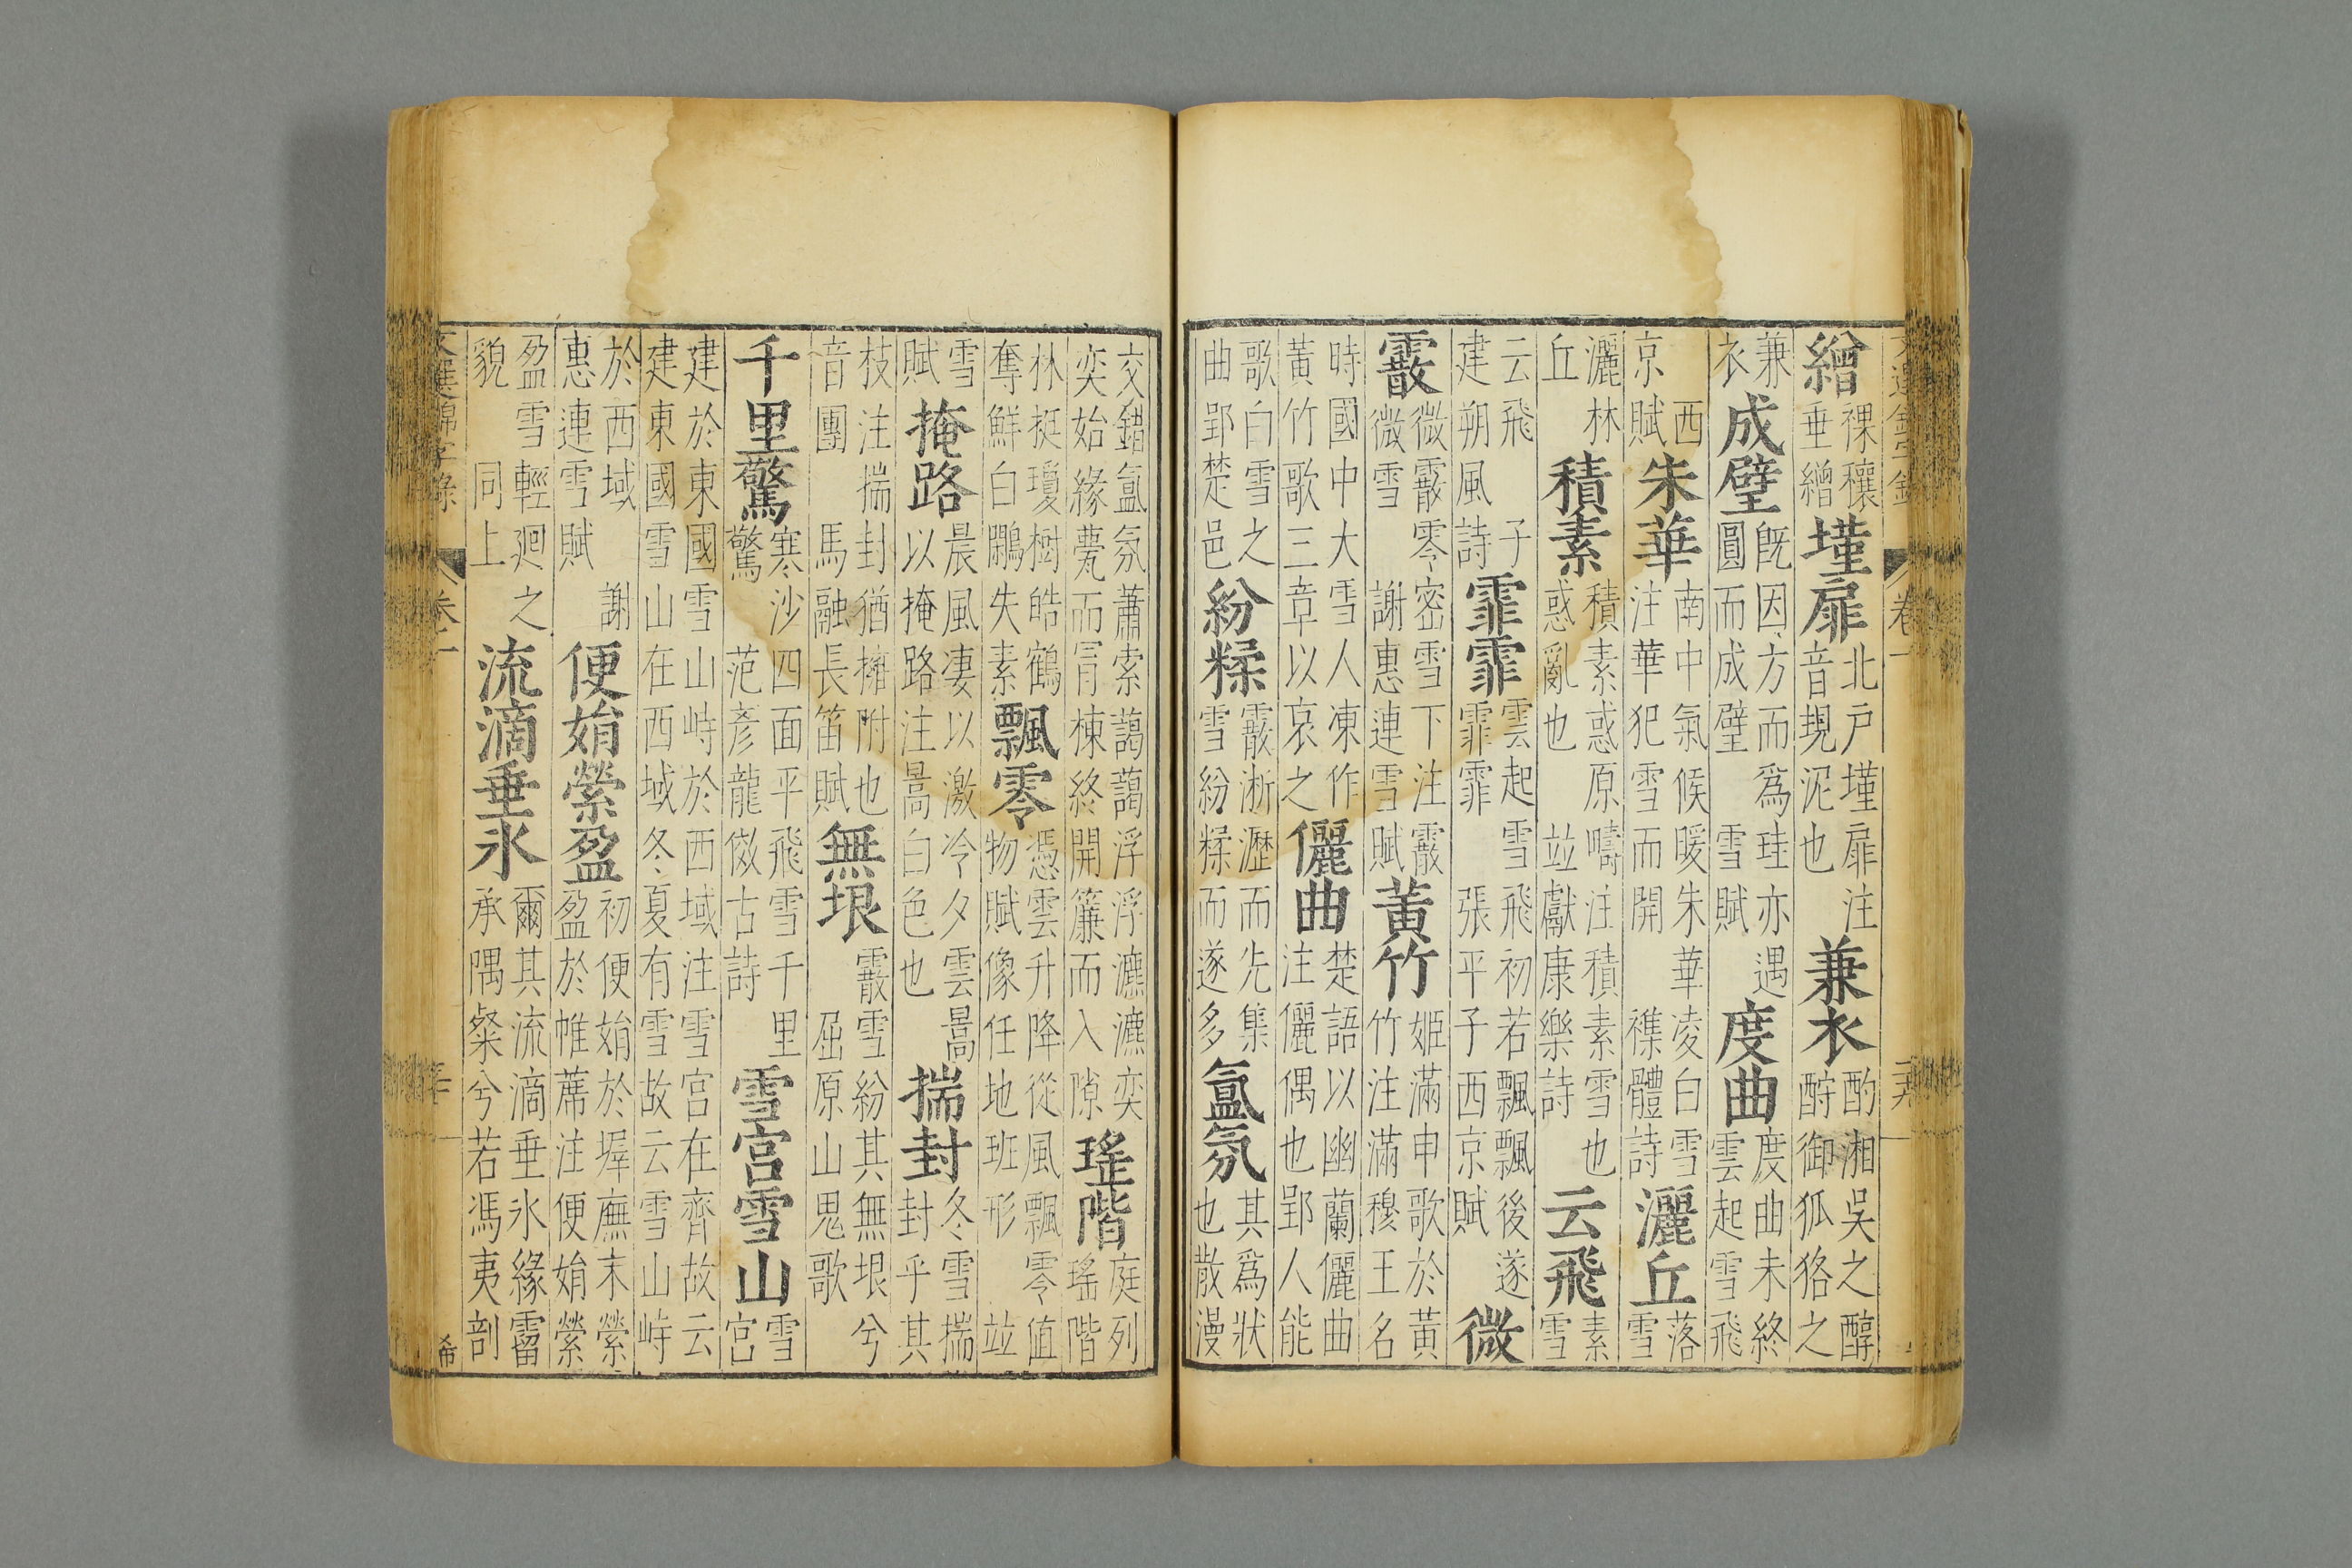 繒裸穰垂繒墐扉北戸墐扉注音覲泥也兼衣酌湘吳之醇酎御狐狢之
兼衣成璧既因方而爲珪亦遇圓而成璧雪賦度曲度曲未終雲起雪飛
西京賦朱華南中氣候暖朱華凌白雪注華犯雪而開襍體詩灑丘落雪
灑林丘積素積素惑原疇注積素雪也惑亂也竝獻康樂詩云飛素雪
云飛子建朔風詩霏霏雲起雪飛初若飄飄後遂霏霏張平子西京賦微
霰微霰零密雪下注霰微雪謝惠連雪賦黃竹姬滿申歌於黃竹注滿穆王名
時國中大雪人凍作黃竹歌三章以哀之儷曲楚語以幽蘭儷曲注儷偶也郢人能
歌白雪之曲郢楚邑紛糅霰淅瀝而先集雪紛糅而遂多氳氛其爲狀也散漫
交錯氳氛蕭索藹藹浮浮瀌瀌奕奕始緣甍而冐棟終開簾而入隙瑤階庭列瑤階
林挺瓊樹皓鶴奪鮮白鷴失素飄零憑雲升降從風飄零值物賦像任地班形竝
雪賦掩路晨風凄以激冷夕雲暠以掩路注暠白色也揣封冬雪揣封乎其
枝注揣封猶擁附也音團馬融長笛賦無垠霰雪紛其無垠兮屈原山鬼歌
千里驚寒沙四面平飛雪千里驚范彥龍傚古詩雪宮雪山雪宮
建於東國雪山峙於西域注雪宮在齊故云建東國雪山在西域冬夏有雪故云雪山峙
於西域謝惠連雪賦便娟縈盈初便娟於墀廡末縈盈於帷蓆注便娟縈
盈雪輕廻之貌同上流滴垂氷爾其流滴垂氷緣霤承隅粲兮若馮夷剖